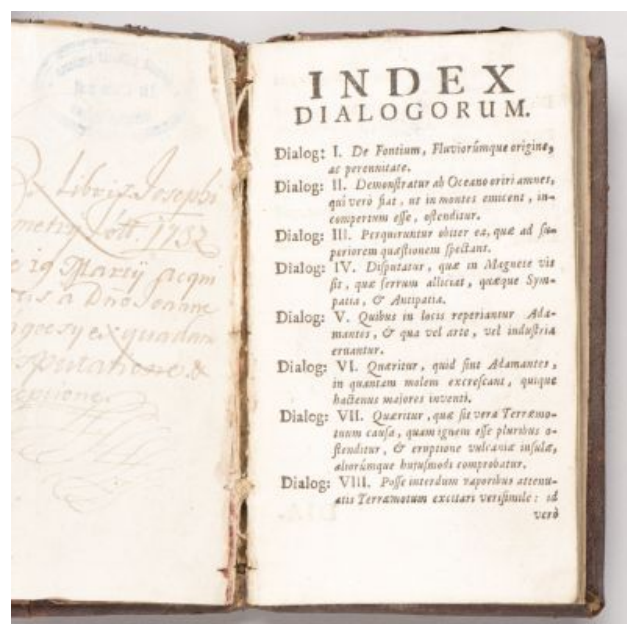 Libris Josephi
1732
19 Martij acqui
a Dño Joanne
INDEX
DIALOGORUM.
Dialog: I. De Fontium, Fluviorúmque origine,
ac perennitate.
Dialog: II. Demonstratur ab Oceano oriri amnes,
qui verò fiat, ut in montes emicent, in-
compertum esse, ostenditur.
Dialog: III. Perquiruntur obiter ea, quæ ad su-
periorem quæstionem spectant.
Dialog: IV. Disputatur, quæ in Magnete vis
sit, quæ ferrum alliciat, quæque Sym-
patia, & Antipatia.
Dialog: V. Quibus in locis reperiantur Ada-
mantes, & qua vel arte, vel industria
eruantur.
Dialog: VI. Quæritur, quid sint Adamantes,
in quantam molem excrescant, quique
hactenus majores inventi.
Dialog: VII. Quæritur, quæ sit vera Terræmo-
tuum causa, quam ignem esse pluribus o-
stenditur, & eruptione vulcaniæ insulæ,
aliorúmque hujusmodi comprobatur.
Dialog: VIII. Posse interdum vaporibus attenu-
atis Terræmotum excitari verisimile: id
verò